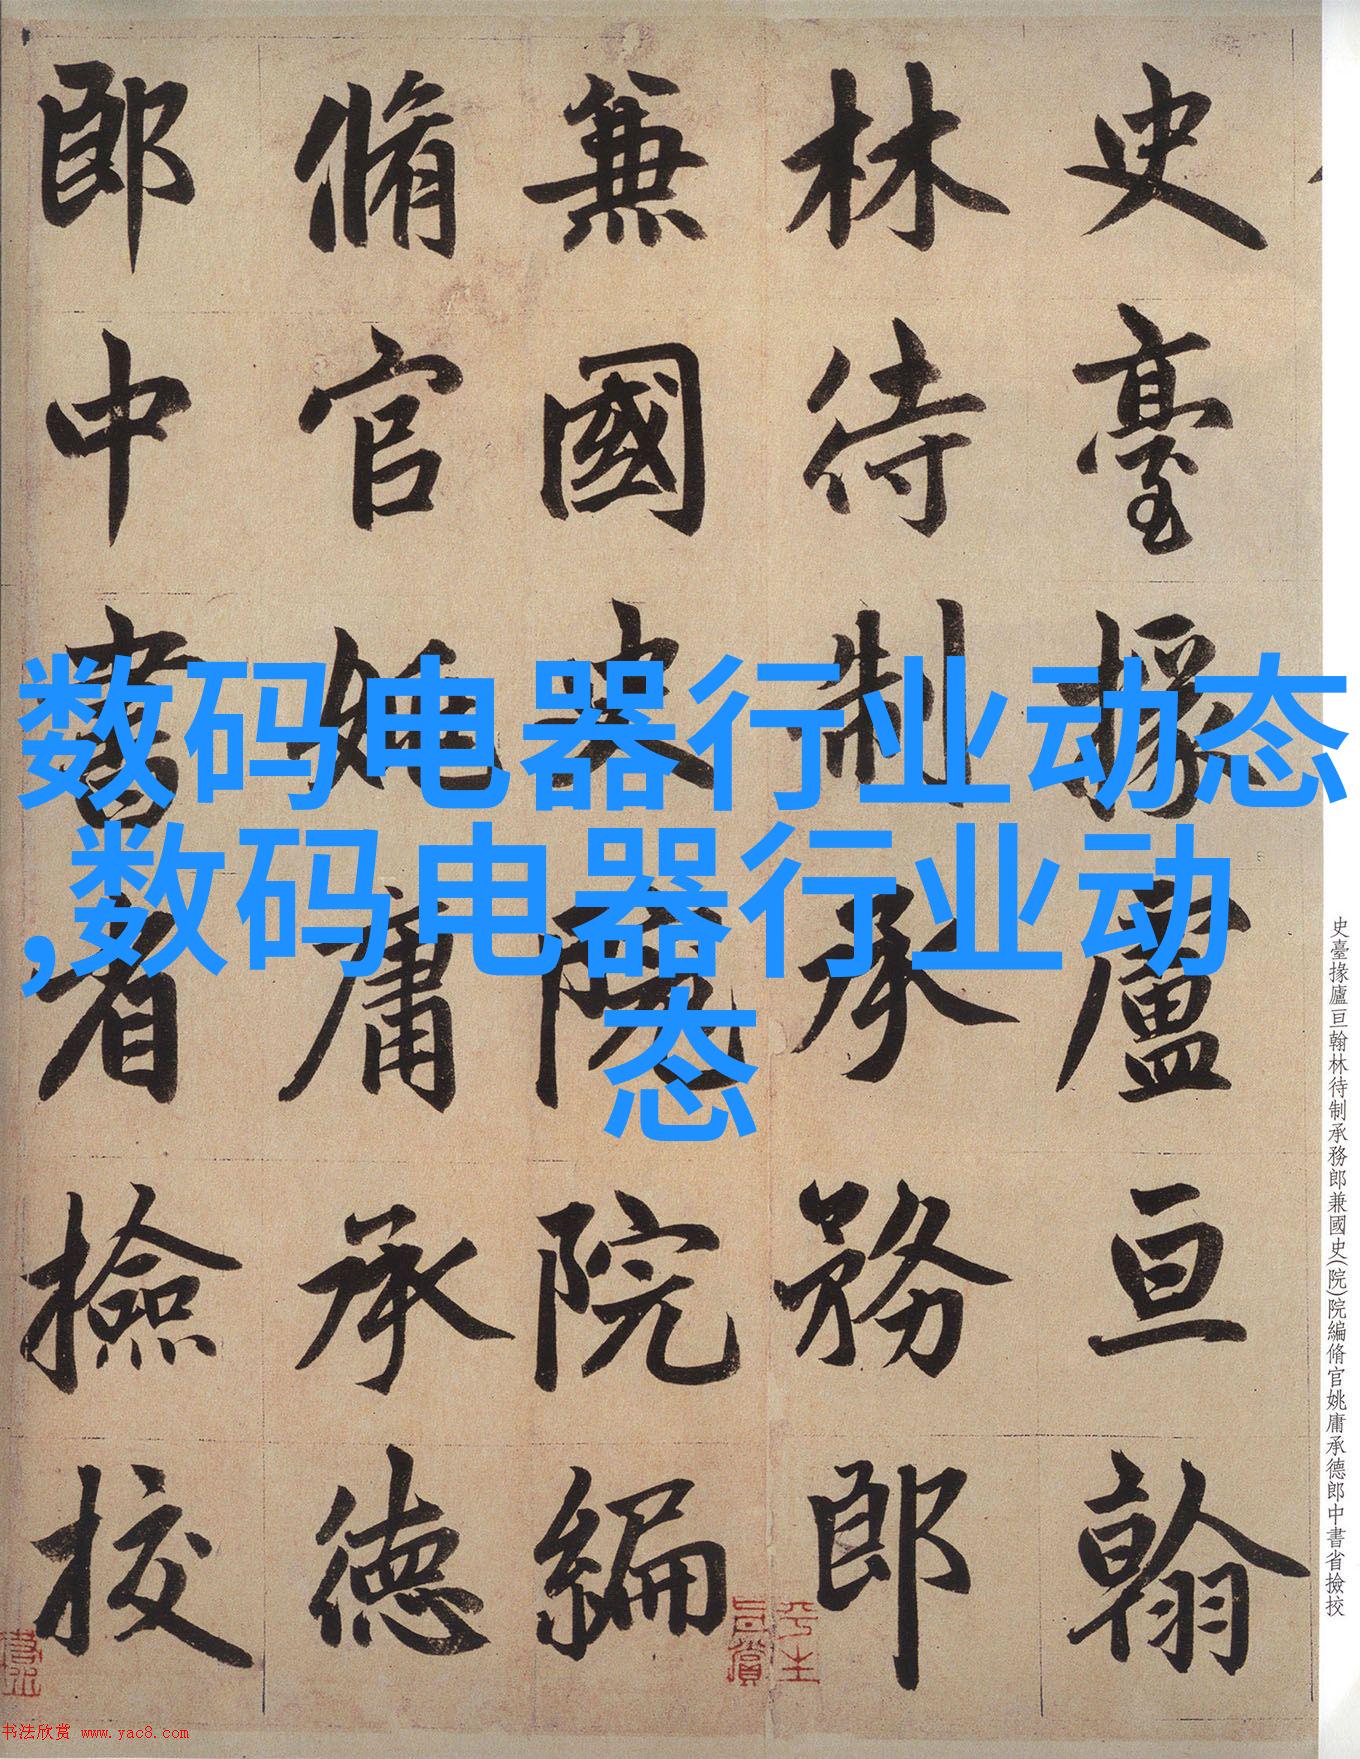 数码电器行业动态
,数码电器行业动
态
史臺掾廬亘翰
林待制承務郎
兼國史院院編
脩官姚庸承德
郎中書省撿挍
史臺掾廬亘翰林待制承務郎兼國史(院)院編脩官姚庸承德郎中書省撿挍
书法欣赏 www.yac8.com